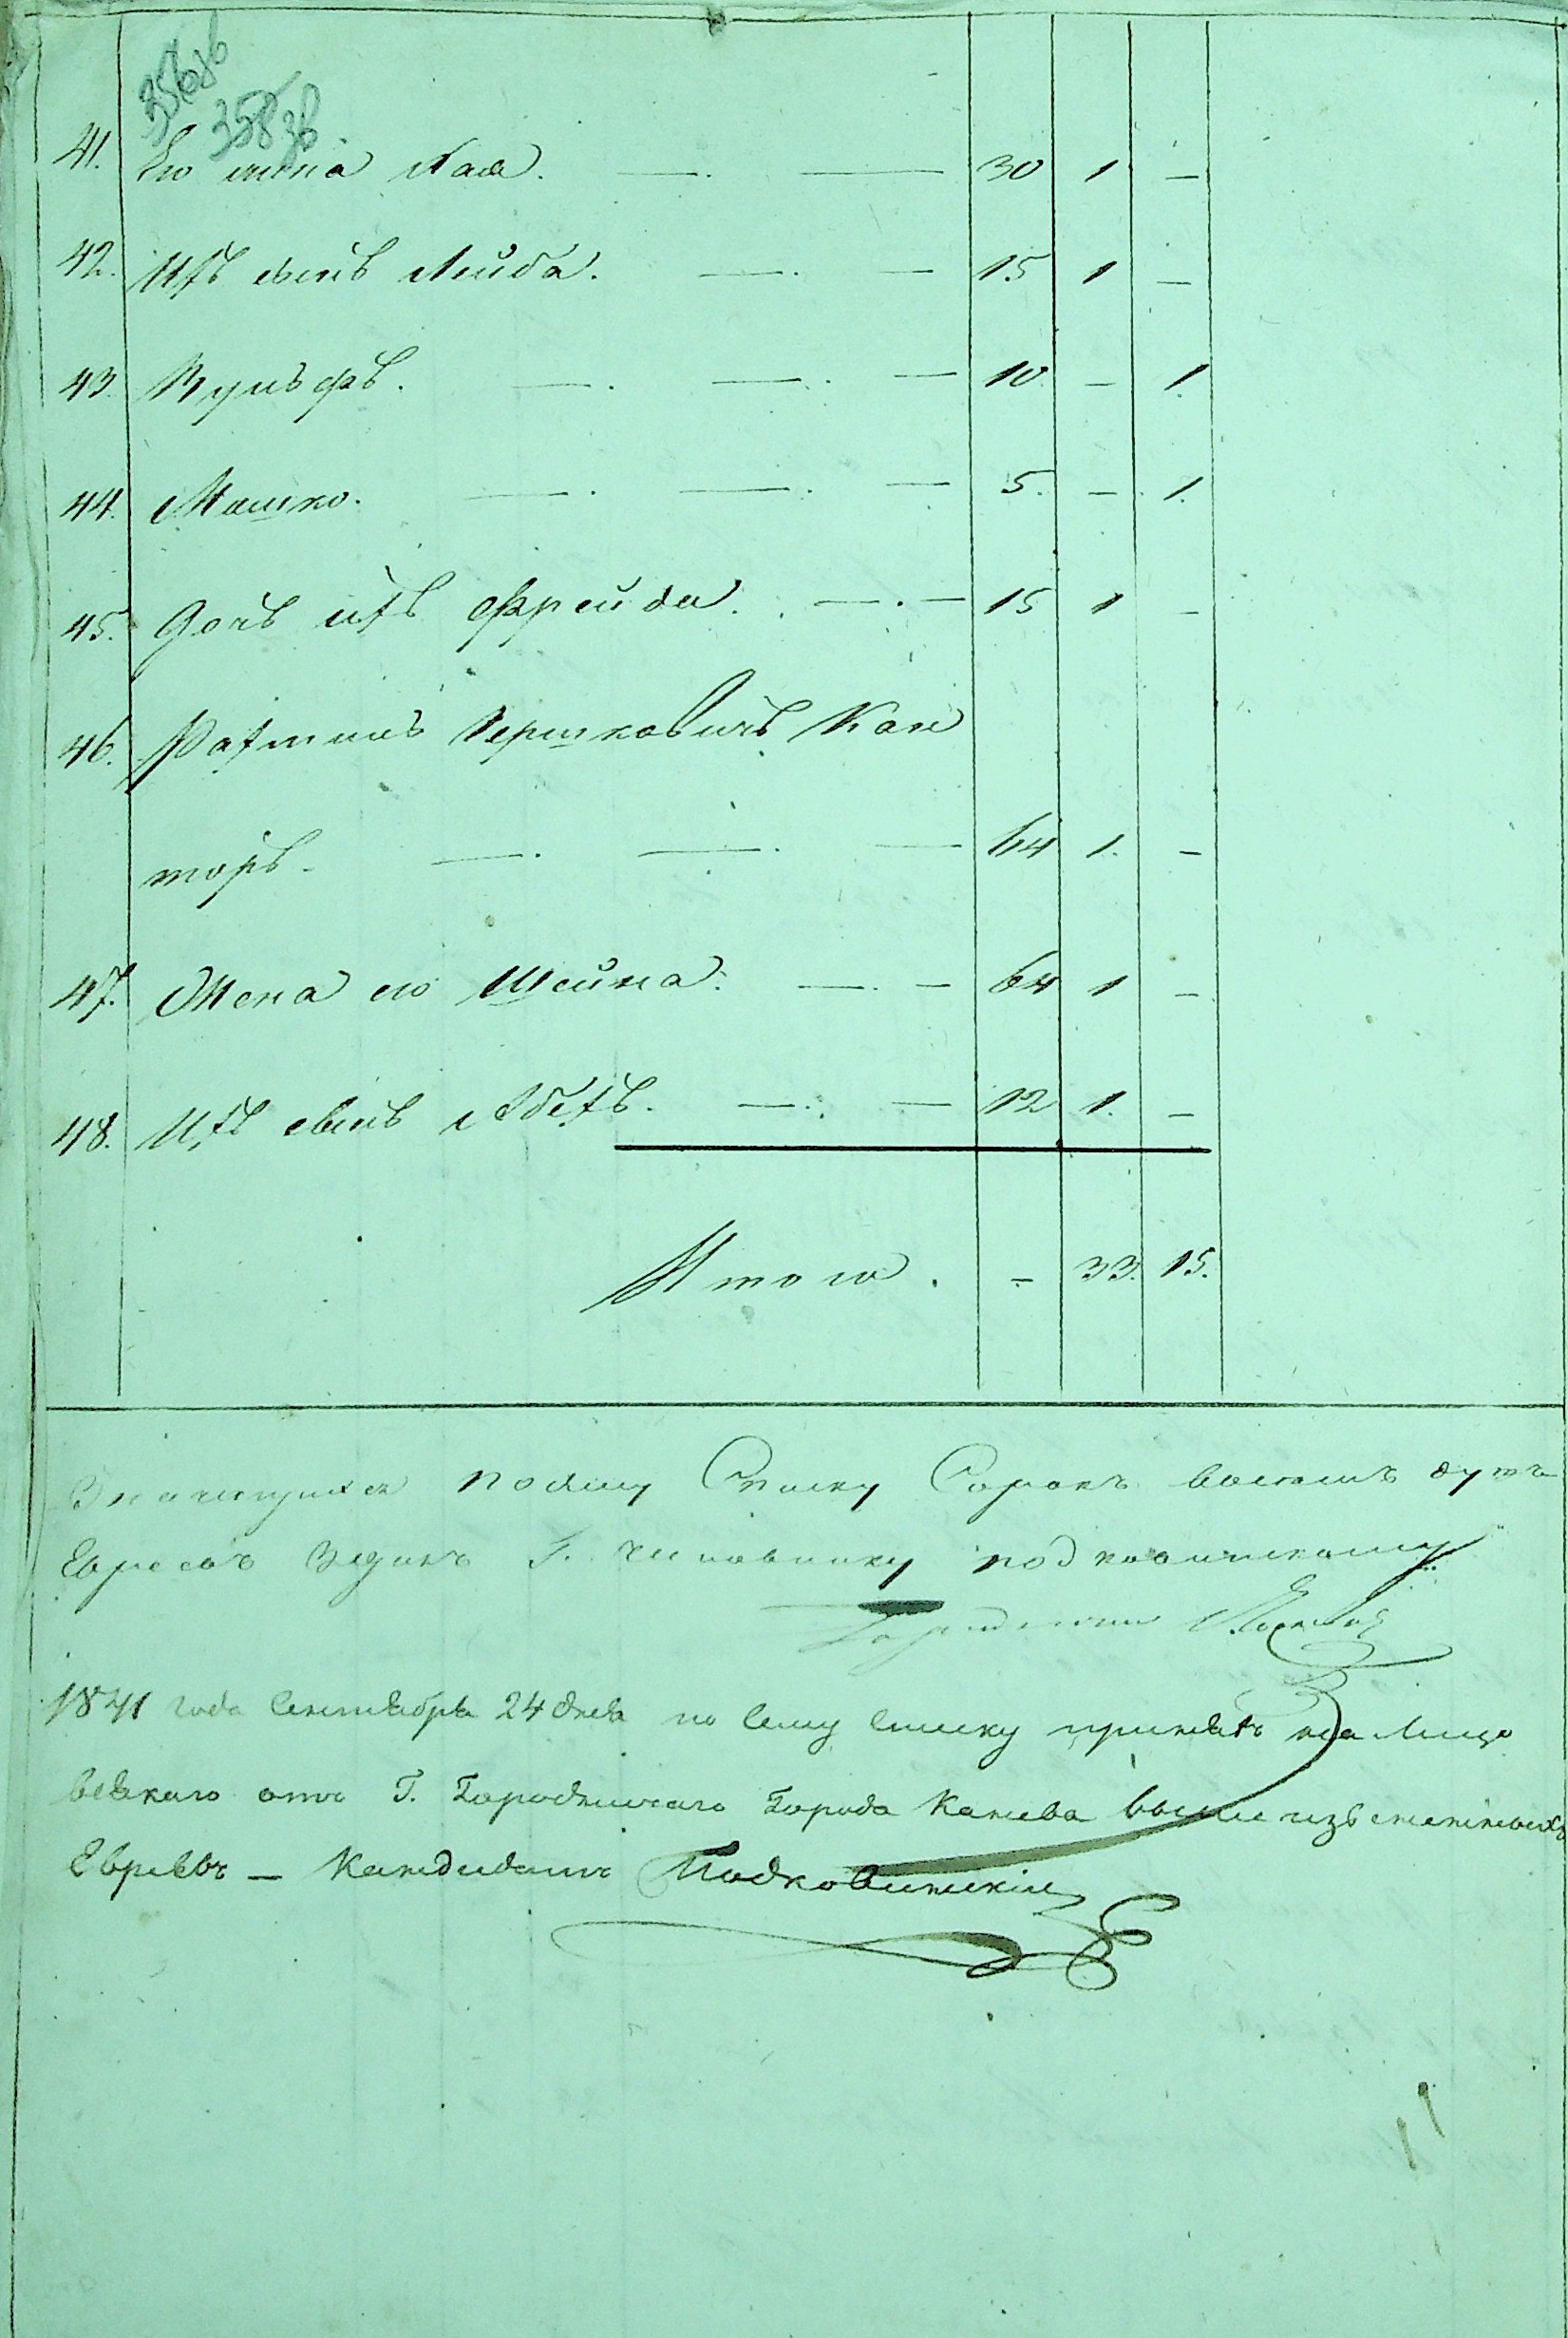 358 зв
41. Его жена Хая. 30 1 —
42. Ихъ сынъ Лейба. 15 1 —
43. Вульфъ. 10 — 1
44. Мошко. 5. — 1.
45. Дочь ихъ Фрейда. 15 1 —
46. Рахмиль Гершковичъ Кан
торъ. 64 1. —
47. Жена его Шейна. 64 1 —
48. Ихъ сынъ 12 1. —
Итого. — 33. 15.
Значущихся по сему Списку Сорокъ восемь душъ
Евреевъ Г. чиновнику подковинскому
Городничий
1841 года Сентября 24 дня по сему списку принялъ на лицо
отъ Г. Городничаго Города Канева выше изъясненныхъ
Евреевъ — Кандидатъ Подковинскій